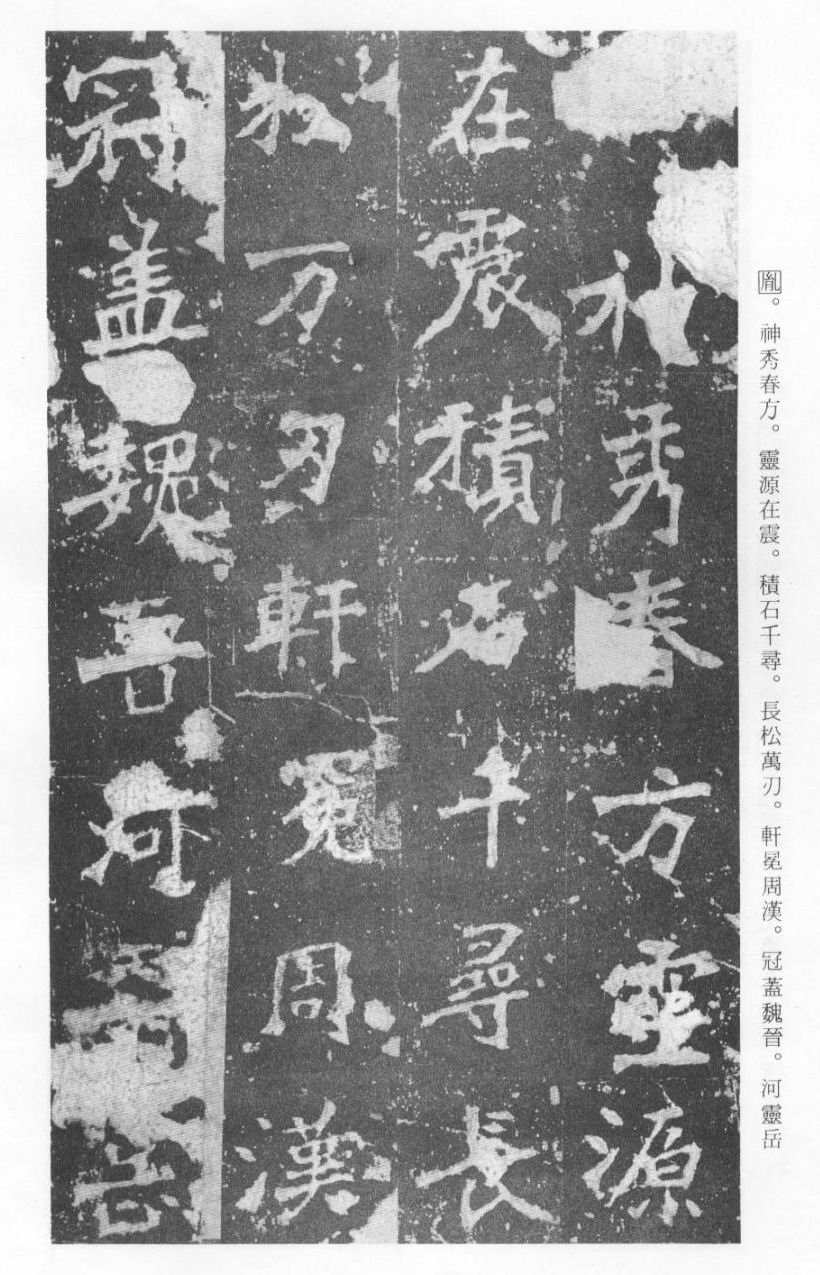 胤。神秀春方。靈源在震。積石千尋。長松萬刃。軒冕周漢。冠蓋魏晉。河靈岳
神秀春方靈源
在震積石千尋長
松万刃軒冕周漢
冠盖魏晉河靈岳